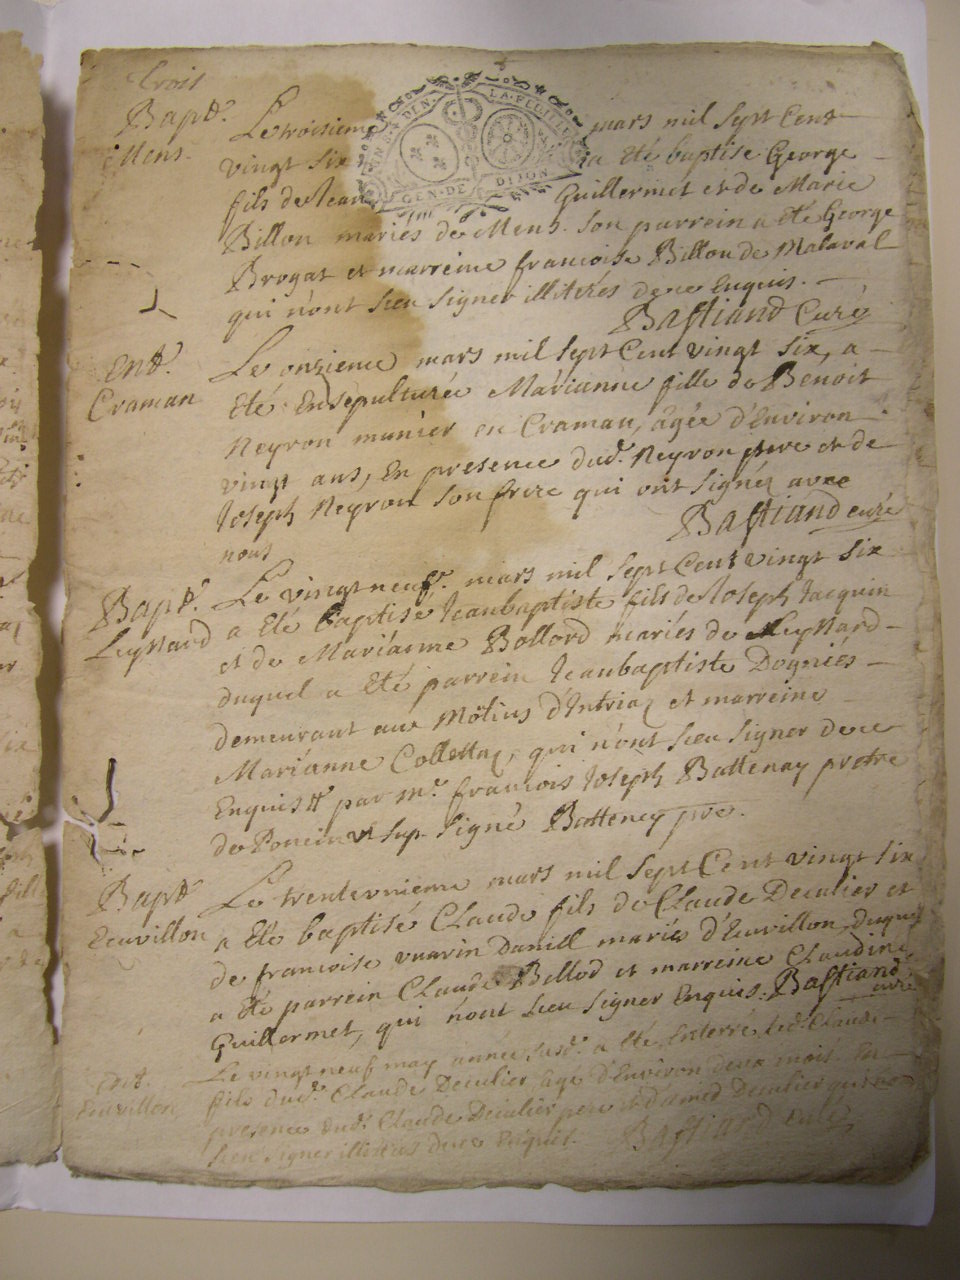 trois
Bapt.
Mens.
GEN. DE DIJON
LA FEUILLE
Le troisieme mars mil sept Cent
vingt six a Eté baptisé George
fils de Jean Guillermet et de Marie
Billon mariés de Mens. son parrein a Eté George
Brogat et marreine francoise Billon de Malaval
qui n'ont sceu signer illitérés de ce Enquis.
Bastiand Curé
Ent.
Craman
Le onzieme mars mil sept Cent vingt six, a
Eté Ensepulturée Marianne fille de Benoit
Neyron munier en Craman, âgée d'Environ
vingt ans, En presence dud. Neyron pere et de
Joseph Neyron son frere qui ont signéz avec
nous
Bastiand curé
Bapt.
Leyssard
Le vingt neuf. mars mil sept Cent vingt six
a Eté baptisé Jeanbaptiste fils de Joseph Jacquin
et de Marianne Bollord mariés de Leyssard
duquel a Eté parrein Jeanbaptiste Dogniés
demeurant aux Molius d'Intriaz et marreine
Marianne Collettaz, qui n'ont sceu signer de ce
Enquis par Mr. francois Joseph Battenay pretre
de Poncin sup. signé Batteney pre.
Bapt
Ecuvillon
Le trenteunieme mars mil sept Cent vingt six
a Eté baptisé Claude fils de Claude Deculier et
de francoise vuarin Daniell mariés d'Ecuvillon, duquel
a Eté parrein Claude Billod et marreine Claudine
Guillermet, qui n'ont sceu signer Enquis. Bastiand
curé
Ent.
Ecuvillon
Le vingt neuf may année susd. a Eté Enterré led. Claude
fils dud. Claude Deculier, agé d'Environ deux mois En
presence dud. Claude Deculier pere et d'amed Deculier qui n'ont
sceu signer illitérés de ce Enquis. Bastiand curé